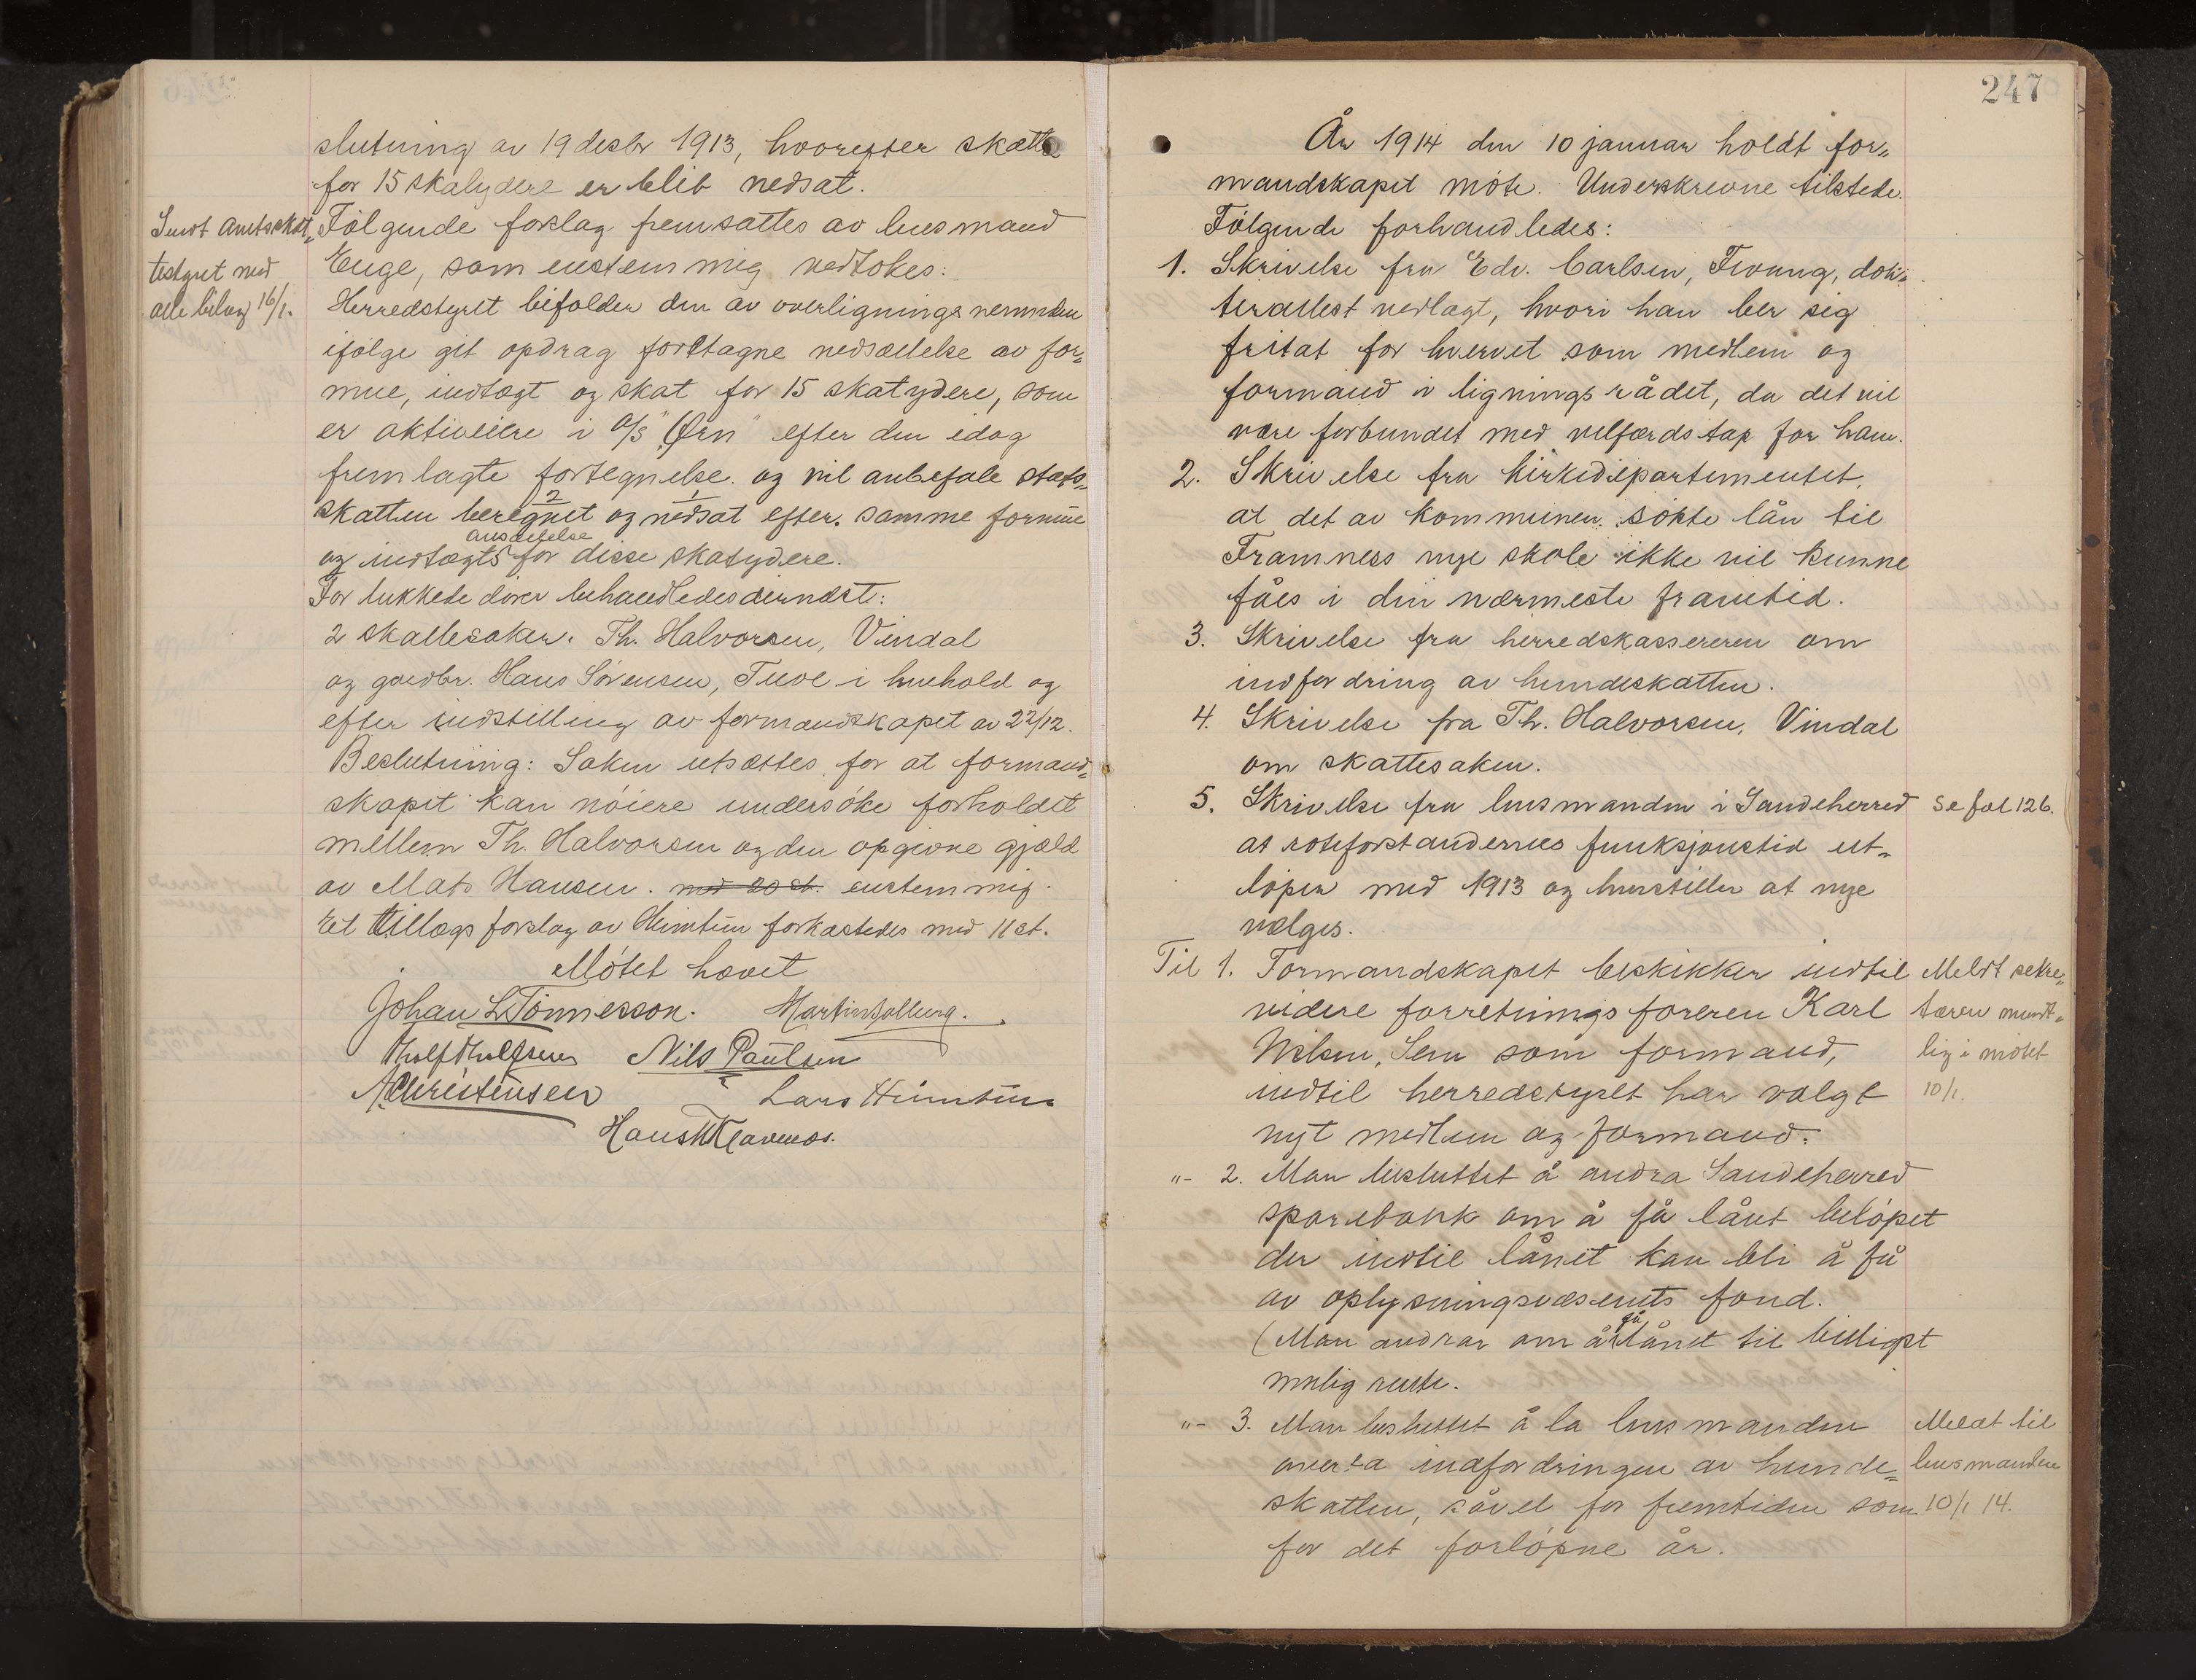 slutning av 19 desbr 1913, hvorefter skatte
for 15 skatydere er blit nedsat.
Sendt amtsskat-
testyret med
alle bilag 16/1.
Følgende forslag fremsattes av lensmand
Enge, som enstemmig vedtokes:
Herredstyret bifalder den av overligningsnemnden
ifølge git opdrag foretagne nedsættelse av for-
mue, indtægt og skat for 15 skatydere, som
er aktieeiere i A/S "Ørn" efter den idag
fremlagte fortegnelse og vil anbefale stats-
skatten beregnet og nedsat efter samme formue
2 1
ansættelse
og indtægts for disse skatydere.
For lukkede dører behandledes dernæst:
2 skattesaker. Th. Halvorsen, Vindal
og gardbr. Hans Sørensen, Tuve i henhold og
efter indstilling av formandskapet av 22/12.
Beslutning: Saken utsættes for at formand-
skapet kan nøiere undersøke forholdet
mellem Th. Halvorsen og den opgivne gjæld
av Mats Hansen. med 20 st. enstemmig.
Et tillægsforslag av Heimtun forkastedes med 11 st.
Møtet hævet
Johan L Tønnesson. Martin Solberg.
Tholf Tholfsen Nils Paulsen
A Christensen Lars Heimtun
Hans Klavenes.
247
År 1914 den 10 januar holdt for-
mandskapet møte. Underskrevne tilstede.
Følgende forhandledes:
1. Skrivelse fra Edv. Carlsen, Fevang, dok-
terattest vedlagt, hvori han ber sig
fritat for hvervet som medlem og
formand i ligningsrådet, da det vil
være forbundet med velfærdstap for ham.
2. Skrivelse fra kirkedepartementet,
at det av kommunen søkte lån til
Framness nye skole ikke vil kunne
fåes i den nærmeste framtid.
3. Skrivelse fra herredskassereren om
indfordring av hundeskatten.
4. Skrivelse fra Th. Halvorsen, Vindal
om skattesaken.
5. Skrivelse fra lensmanden i Sandeherred
Se fol 126.
at roteforstandernes funksjonstid ut-
løper med 1913 og henstiller at nye
vælges.
Til 1. Formandskapet beskikker indtil
videre forretningsføreren Karl
Nilsen, Sem som formand,
indtil herredstyret har valgt
nyt medlem og formand.
Meldt sekre-
tæren mundt-
lig i møtet
10/1.
"- 2. Man besluttet å andra Sandeherred
sparebank om å få lånt beløpet
der indtil lånet kan bli å få
av oplysningsvæsenets fond.
få
(Man andrar om å lånet til billigst
mulig rente.
"- 3. Man besluttet å la lensmanden
overta indfordringen av hunde-
skatten, såvel for fremtiden som
for det forløpne år.
Meldt til
lensmanden
10/1 14.